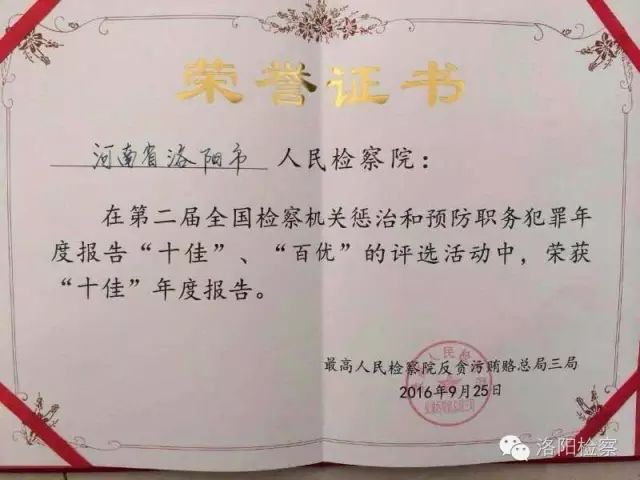 荣誉证书
河南省洛阳市 人民检察院：
在第二届全国检察机关惩治和预防职务犯罪年
度报告“十佳”、“百优”的评选活动中，荣获
“十佳”年度报告。
最高人民检察院反贪污贿赂总局三局
2016年9月25日
洛阳检察